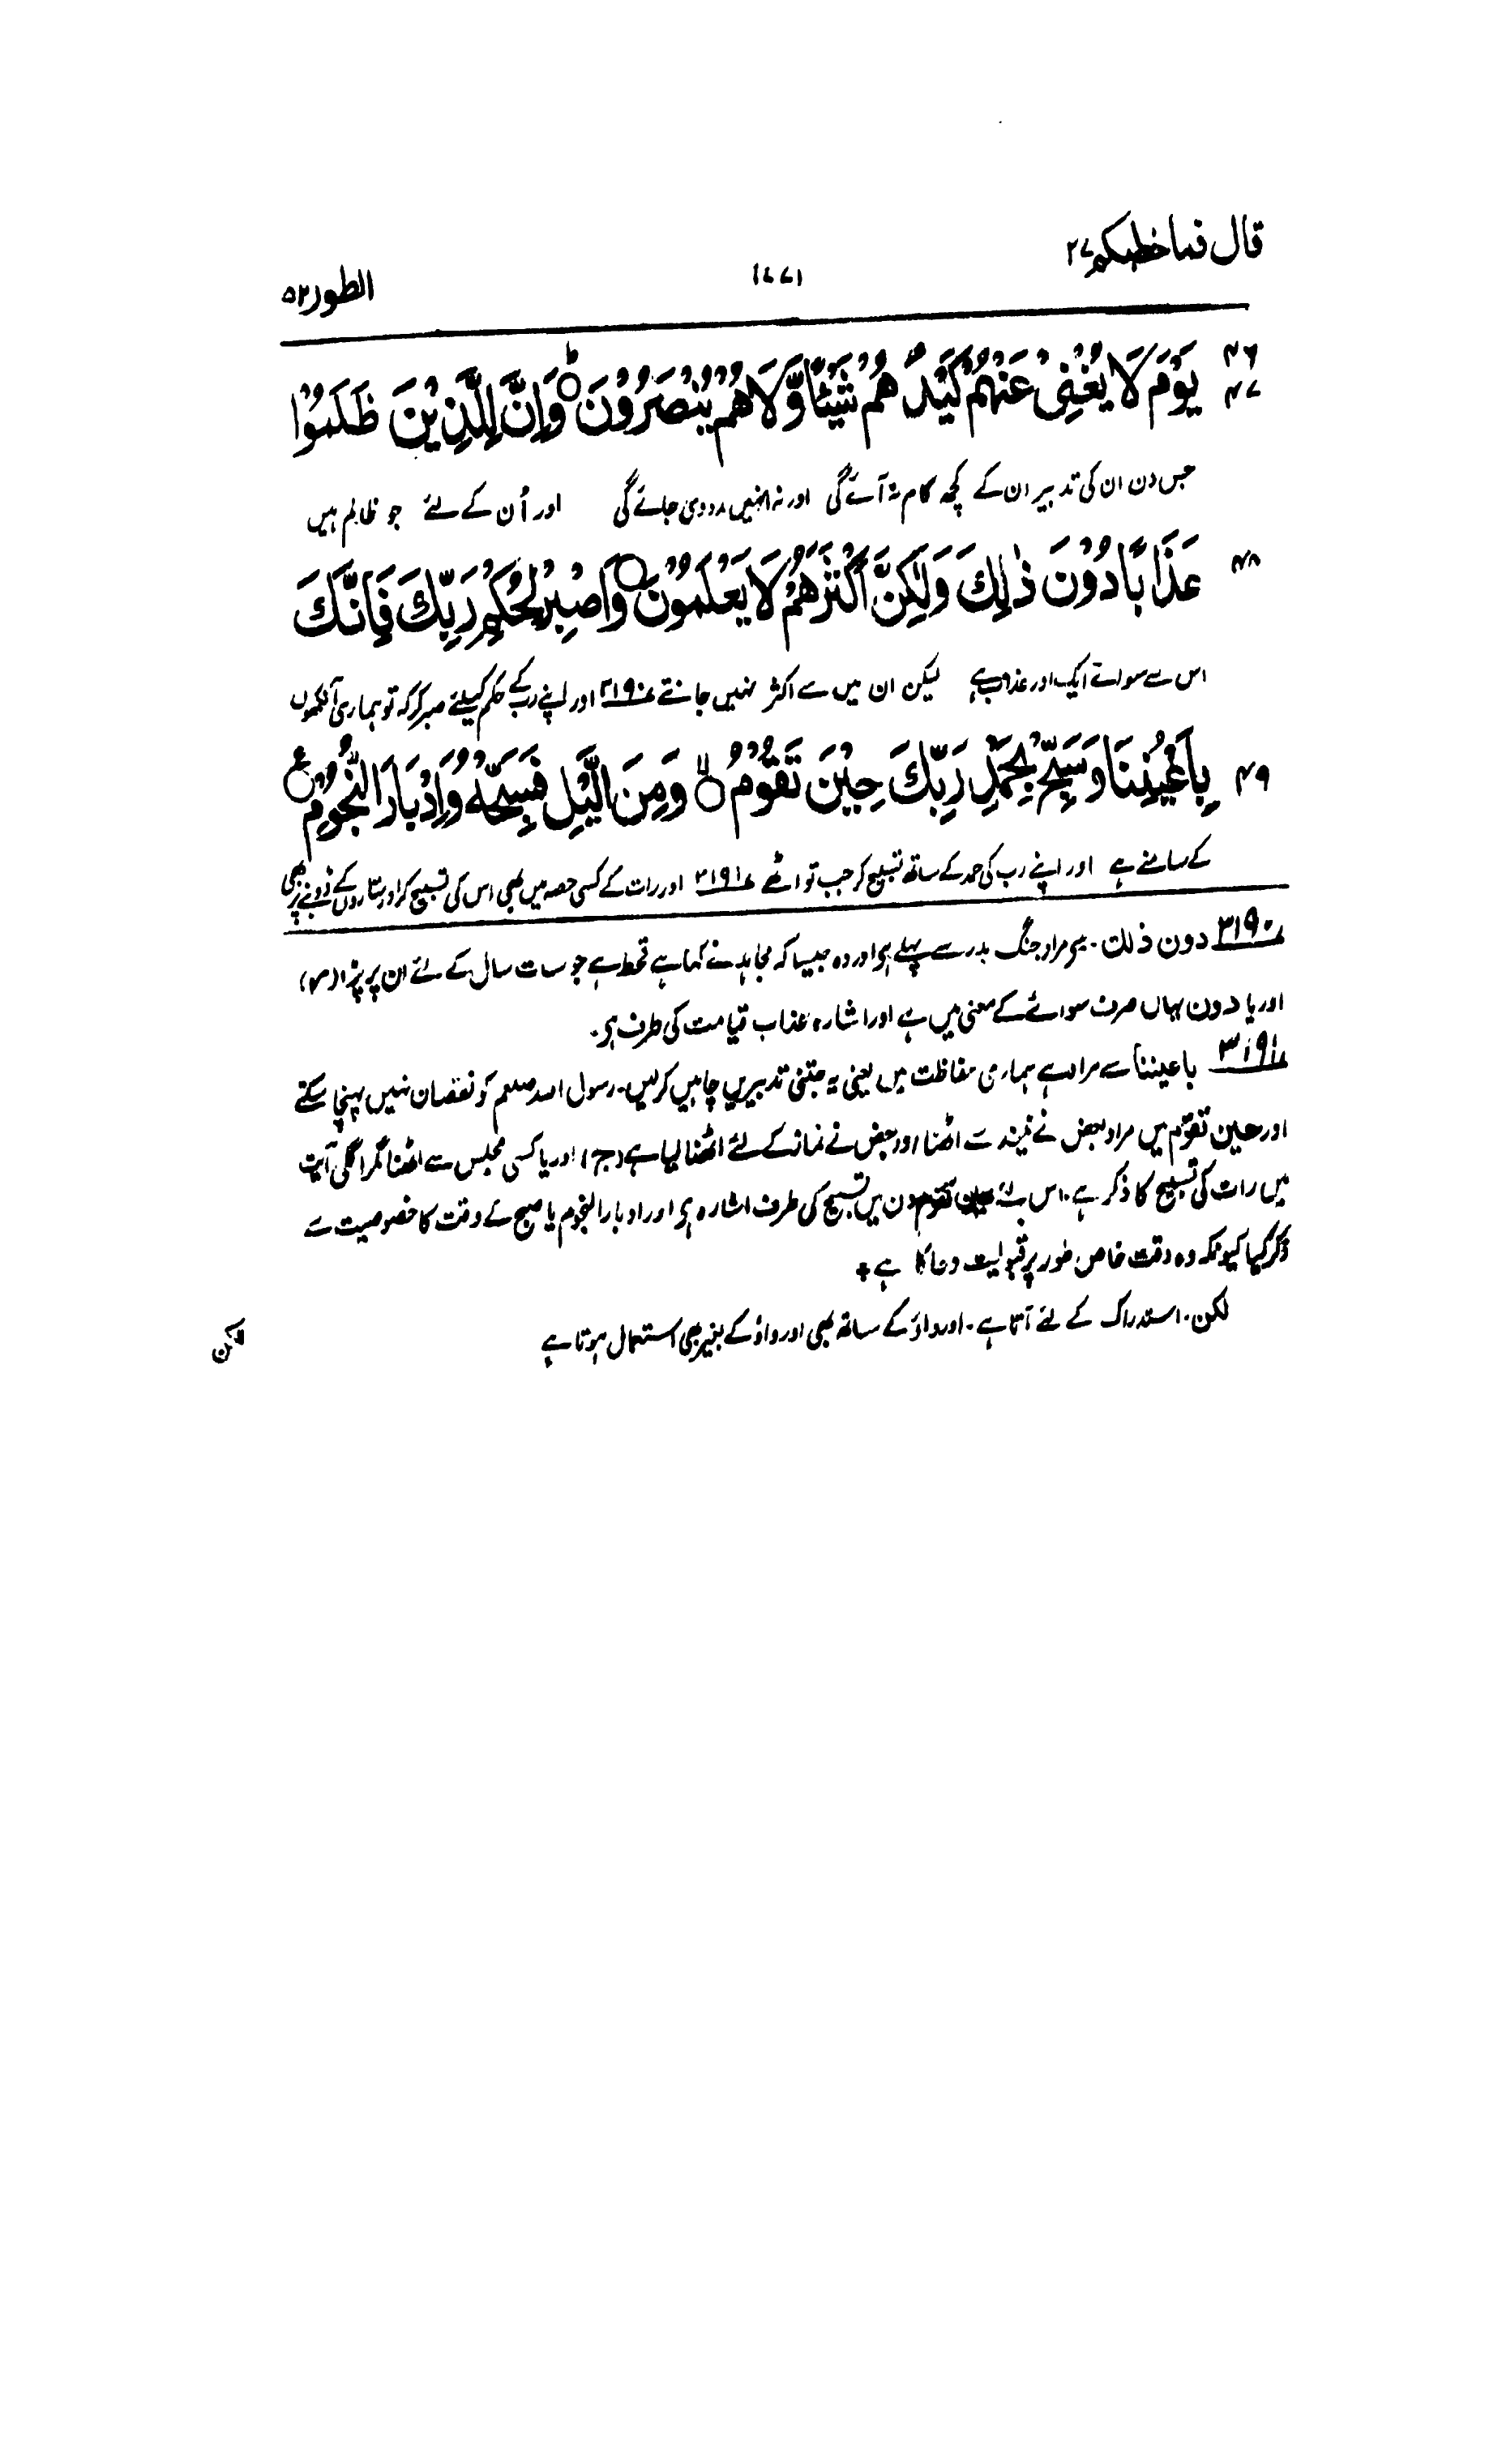 قال فما خطبکم ۲۷
۱۷۷۱
الطور ۵۲
۴۶
۴۷
يَوْمَ لَا يُغْنِىْ عَنْهُمْ كَيْدُهُمْ شَيْـًٔا وَّلَا هُمْ يُنْصَرُوْنَ ۝ؕ وَاِنَّ لِلَّذِيْنَ ظَلَمُوْا
جس دن ان کی تدبیر ان کے کچھ کام نہ آئے گی اور نہ انہیں مدد دی جائے گی اور اُن کے لئے جو ظالم ہیں
۴۸
عَذَابًا دُوْنَ ذٰلِكَ وَلٰكِنَّ اَكْثَرَهُمْ لَا يَعْلَمُوْنَ ۝ وَاصْبِرْ لِحُكْمِ رَبِّكَ فَاِنَّكَ
اس سے سوائے ایک اور عذاب ہے لیکن ان میں سے اکثر نہیں جانتے ۳۱۹۰ اور اپنے رب کے حکم کیلئے صبر کر کہ تو ہماری آنکھوں
۴۹
بِاَعْيُنِنَا وَسَبِّحْ بِحَمْدِ رَبِّكَ حِيْنَ تَقُوْمُ ۝ۙ وَمِنَ الَّيْلِ فَسَبِّحْهُ وَاِدْبَارَ النُّجُوْمِ ۝ع
کے سامنے ہے اور اپنے رب کی حمد کے ساتھ تسبیح کر جب تو اٹھے ۳۱۹۱ اور رات کے کسی حصہ میں بھی اس کی تسبیح کر اور ستاروں کے ڈوبنے پر بھی
۳۱۹۰ دون ذلک۔ یہ مراد جنگ بدر سے پہلے ہے اور وہ جیسا کہ مجاہد نے کہا ہے قحط ہے جو سات سال کے لئے ان پر پڑا (ر)
اور یا دون یہاں صرف سوائے کے معنی میں ہے اور اشارہ عذاب قیامت کی طرف ہے۔
۳۱۹۱ باعیننا سے مراد ہے ہماری حفاظت میں یعنی یہ جتنی تدبیریں چاہیں کرلیں۔ رسول اللہ صلعم کو نقصان نہیں پہنچا سکتے
اور حین تقوم میں مراد بعض نے نیند سے اٹھنا اور بعض نے نماز کے لئے اٹھنا لیا ہے (ج) اور یا کسی مجلس سے اٹھنا مگر اگلی آیت
میں رات کی تسبیح کا ذکر ہے۔ اس لئے حین تقوم دن میں تسبیح کی طرف اشارہ ہے اور ادبار النجوم یا صبح کے وقت کا خصوصیت سے
ذکر کیا کیونکہ وہ وقت خاص طور پر قبولیت دعا کا ہے +
لکن۔ استدراک کے لئے آتا ہے۔ اور واؤ کے ساتھ بھی اور واؤ کے بغیر بھی استعمال ہوتا ہے
لکن